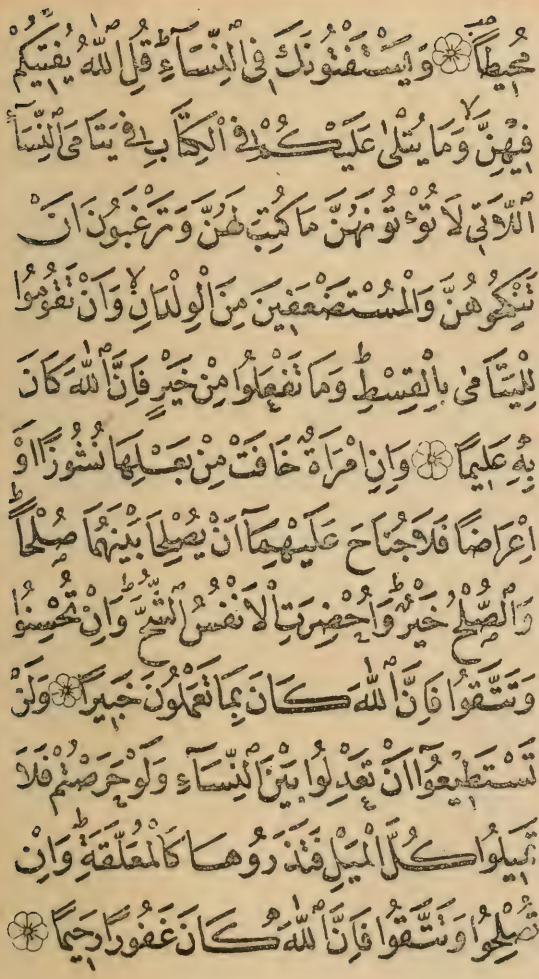 مُحِيطًا ۝ وَيَسْتَفْتُونَكَ فِي النِّسَاءِ قُلِ اللّٰهُ يُفْتِيكُمْ
فِيهِنَّ وَمَا يُتْلٰى عَلَيْكُمْ فِي الْكِتَابِ فِي يَتَامَى النِّسَاءِ
اللَّاتِي لَا تُؤْتُونَهُنَّ مَا كُتِبَ لَهُنَّ وَتَرْغَبُونَ اَنْ
تَنْكِحُوهُنَّ وَالْمُسْتَضْعَفِينَ مِنَ الْوِلْدَانِ وَاَنْ تَقُومُوا
لِلْيَتَامٰى بِالْقِسْطِ وَمَا تَفْعَلُوا مِنْ خَيْرٍ فَاِنَّ اللّٰهَ كَانَ
بِهِ عَلِيمًا ۝ وَاِنِ امْرَاَةٌ خَافَتْ مِنْ بَعْلِهَا نُشُوزًا اَوْ
اِعْرَاضًا فَلَا جُنَاحَ عَلَيْهِمَا اَنْ يُصْلِحَا بَيْنَهُمَا صُلْحًا
وَالصُّلْحُ خَيْرٌ وَاُحْضِرَتِ الْاَنْفُسُ الشُّحَّ وَاِنْ تُحْسِنُوا
وَتَتَّقُوا فَاِنَّ اللّٰهَ كَانَ بِمَا تَعْمَلُونَ خَبِيرًا ۝ وَلَنْ
تَسْتَطِيعُوا اَنْ تَعْدِلُوا بَيْنَ النِّسَاءِ وَلَوْ حَرَصْتُمْ فَلَا
تَمِيلُوا كُلَّ الْمَيْلِ فَتَذَرُوهَا كَالْمُعَلَّقَةِ وَاِنْ
تُصْلِحُوا وَتَتَّقُوا فَاِنَّ اللّٰهَ كَانَ غَفُورًا رَحِيمًا ۝